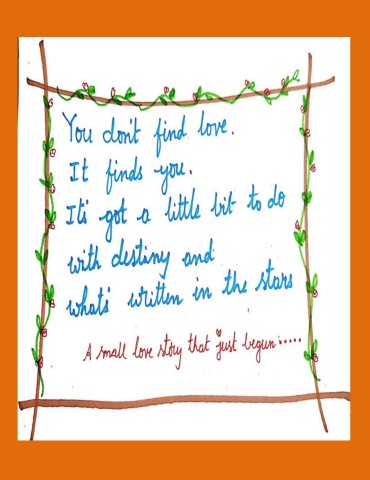 You don't find love.
It finds you.
It's got a little bit to do
with destiny and
what's written in the stars
A small love story that just begun.....